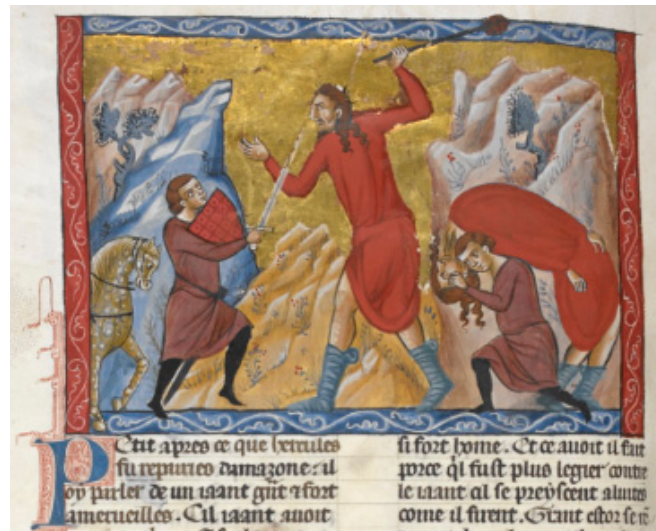 Petit apres ce que hercules
fu repuries damazone. il
oy parler de un iaiant gnt ⁊ fort
amerueilles. Cil iaiant auoit
si fort home. Et ce auoit il fait
porce ql fust plus legier contre
le iaiant cil se preyscent a luites
come il firent. Grant estor se